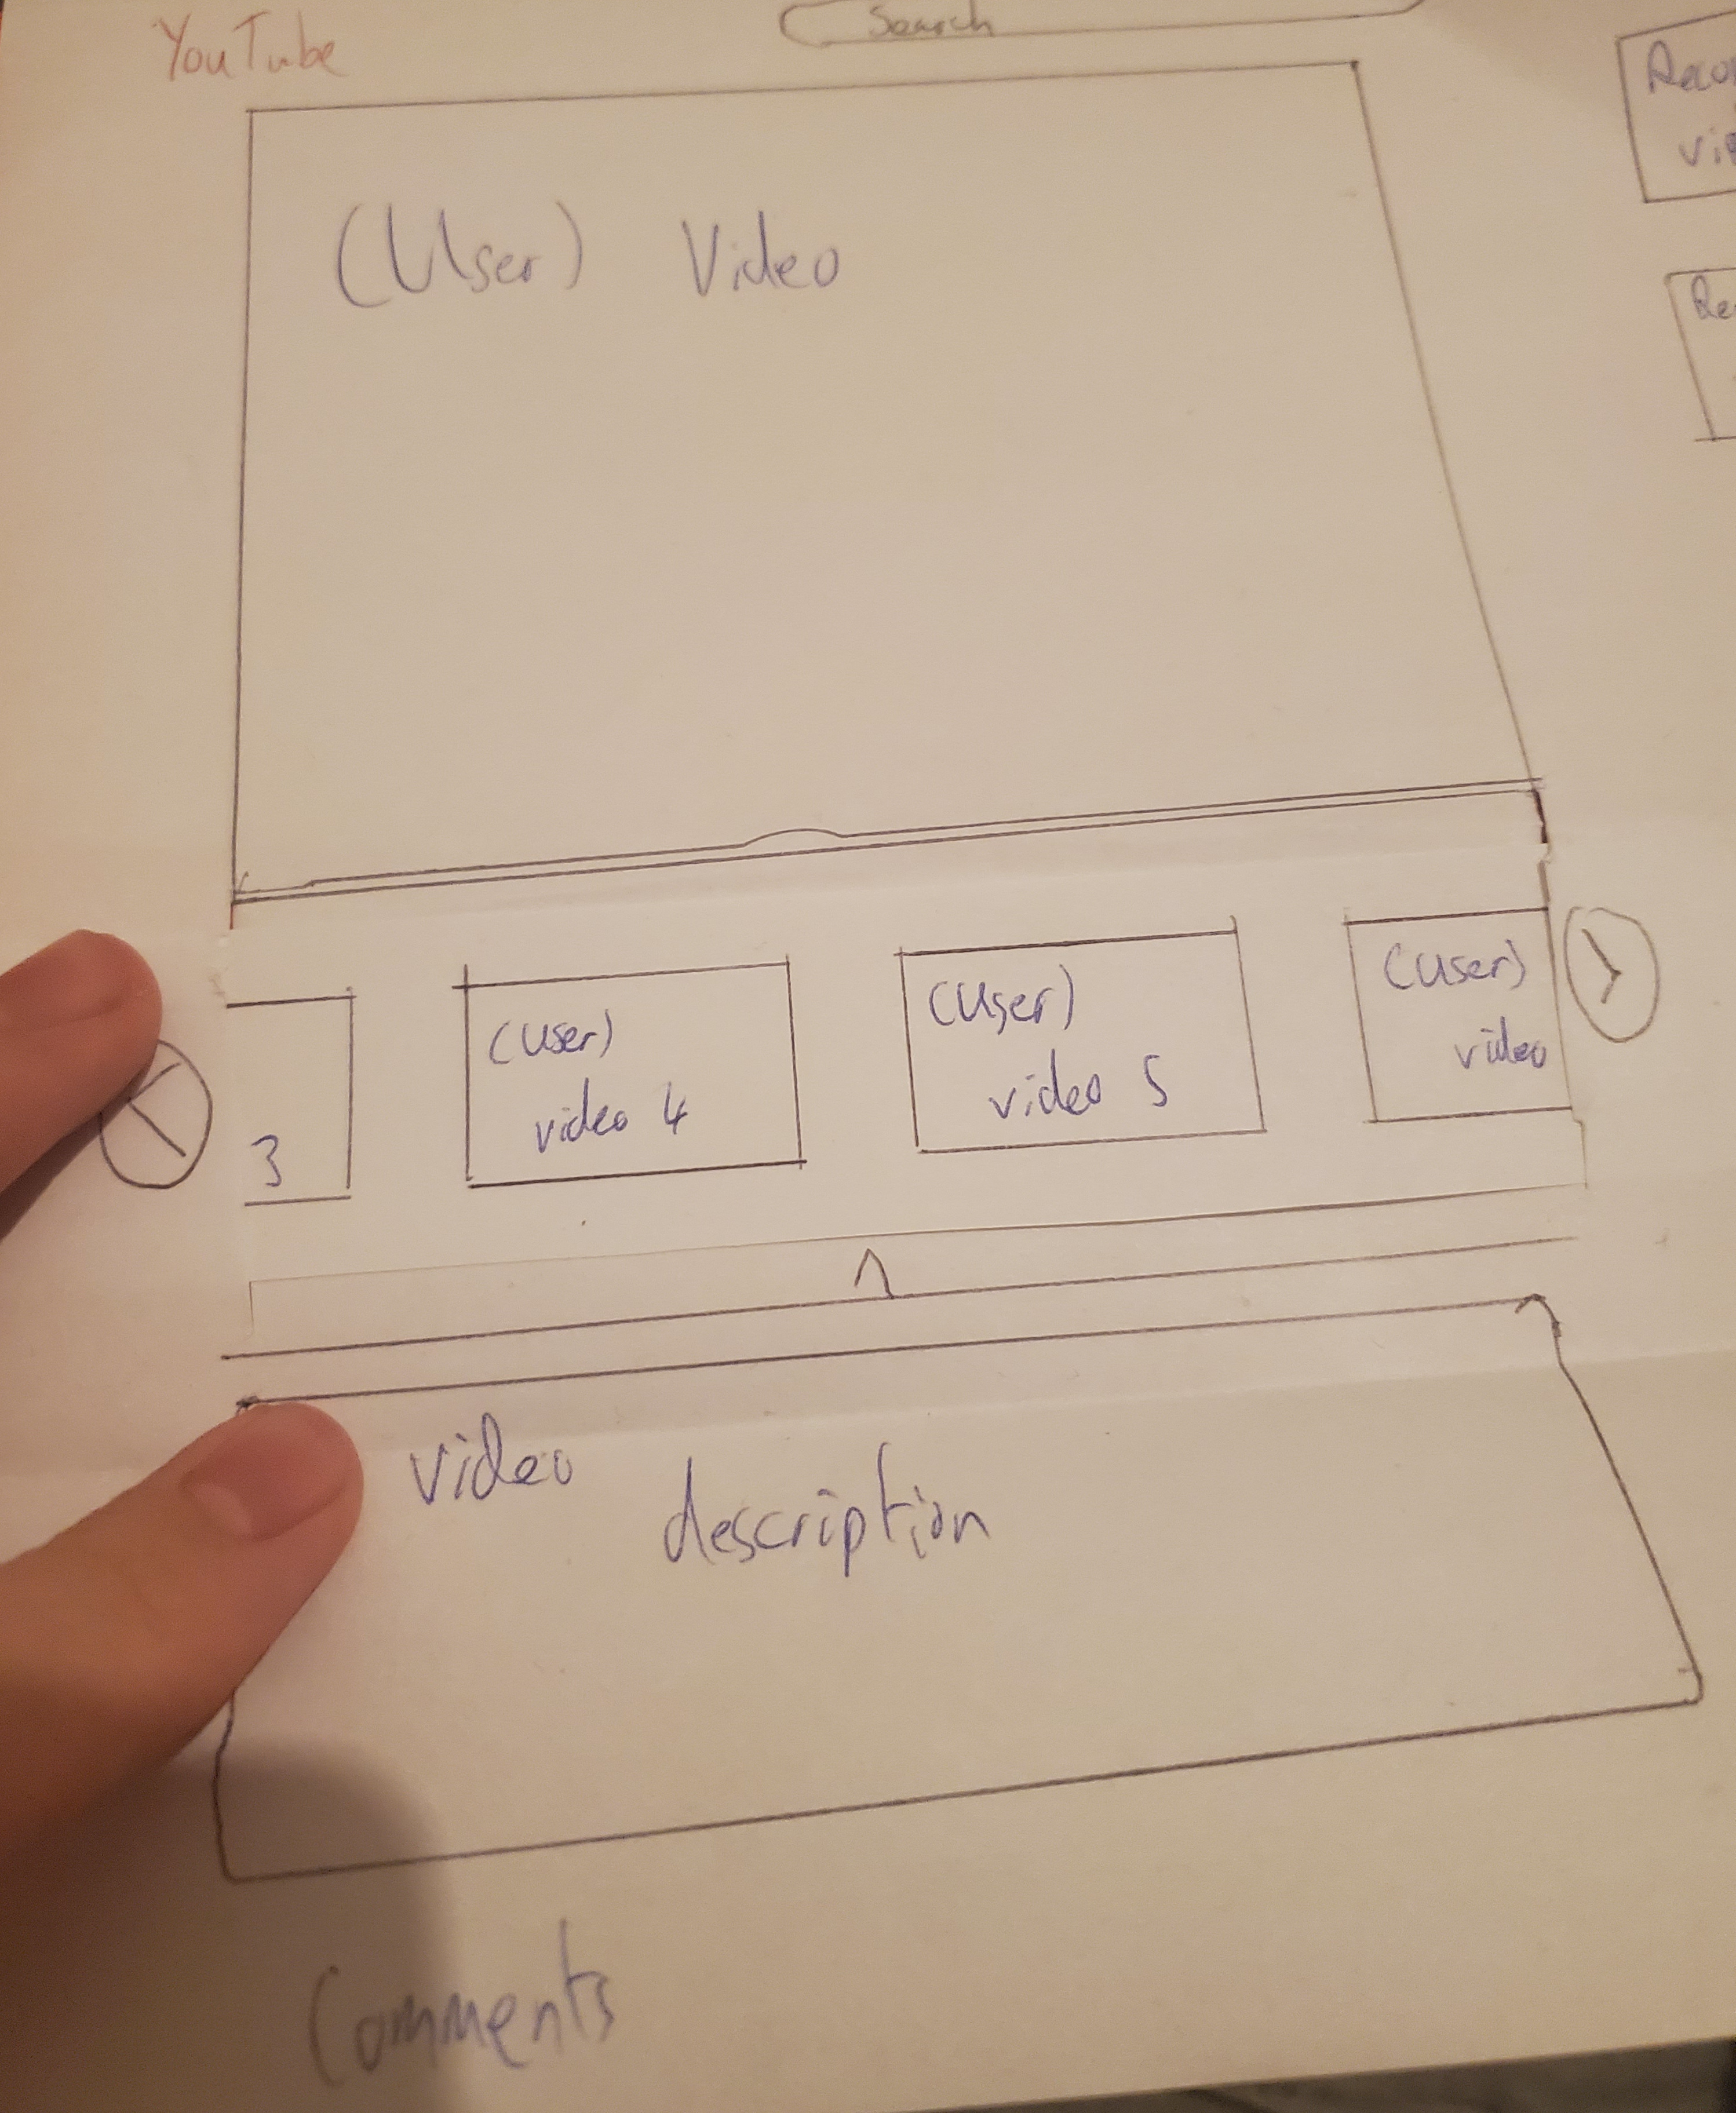 YouTube
Search
(User) Video
3
(User)
video 4
(User)
video 5
(User)
video
video
description
Comments